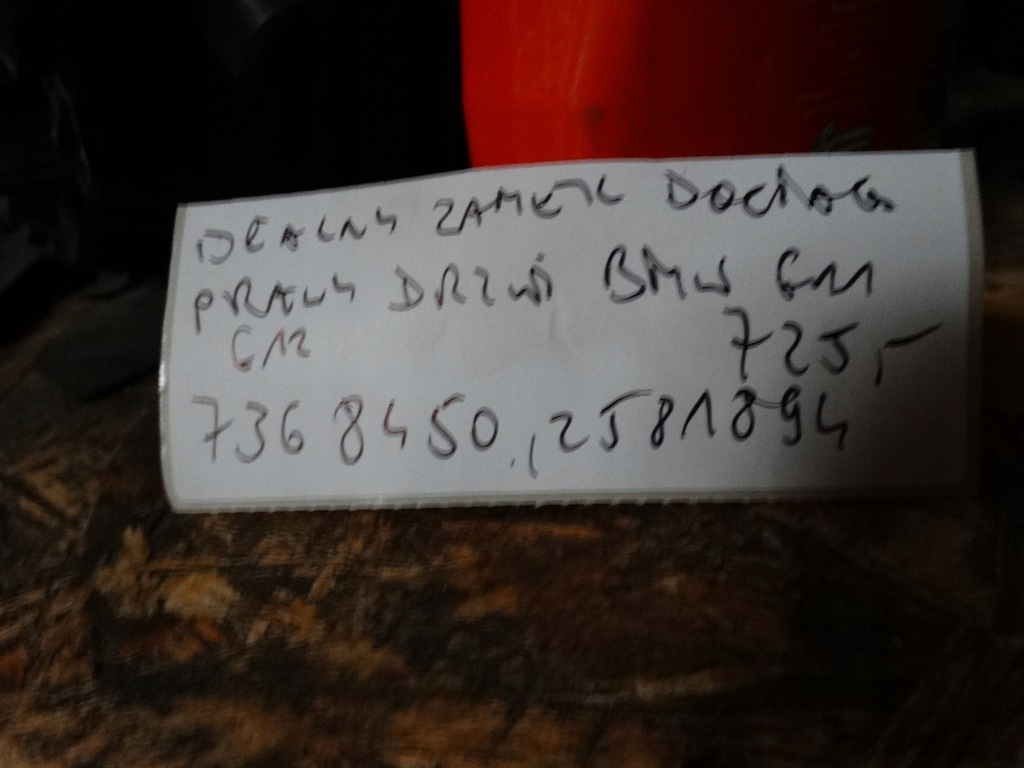 IDEALNY ZAMEK DOCIĄG
PRAWY DRZWI BMW G11
G12 725,-
7368450, 2581894